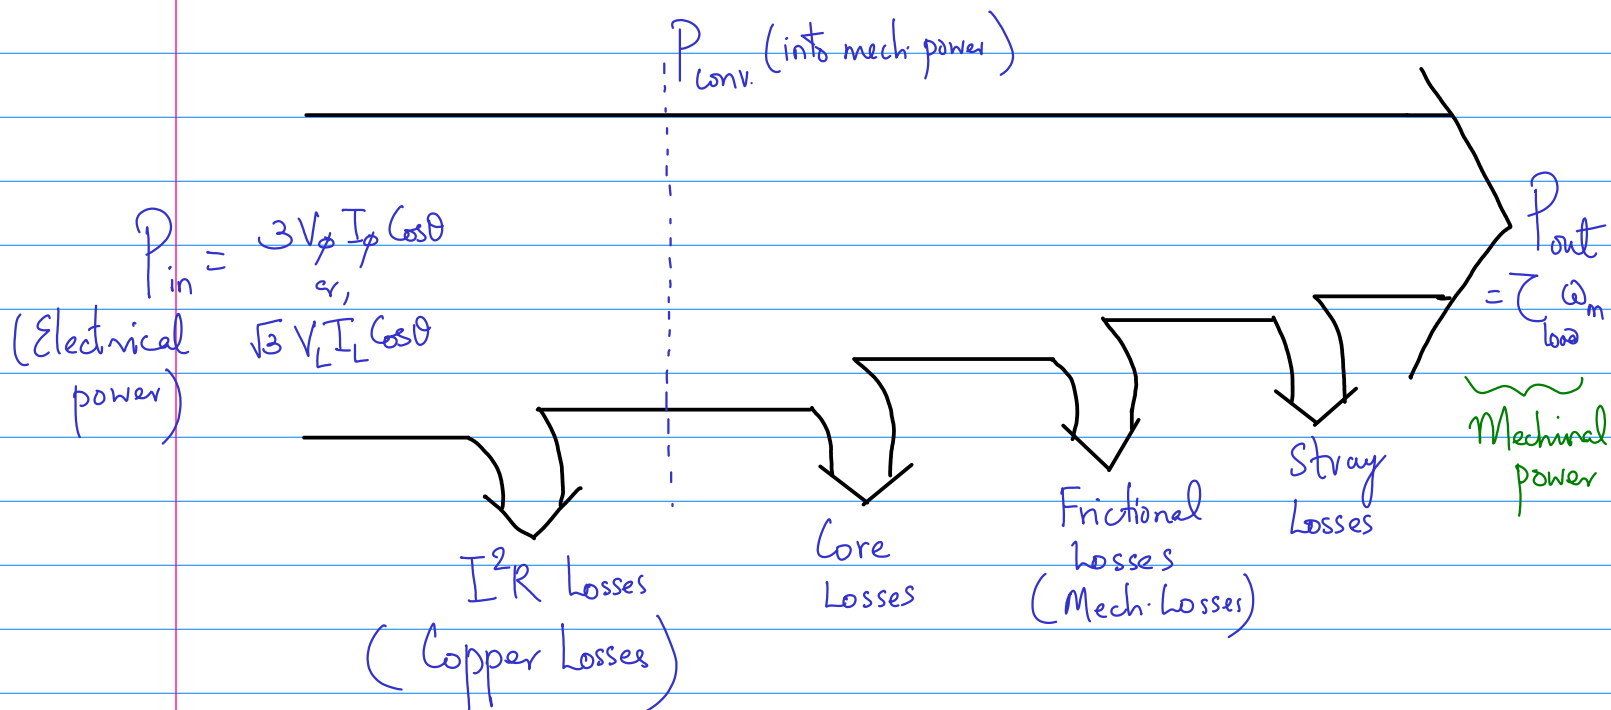 P_conv. (into mech. power)
P_in = 3 V_ϕ I_ϕ Cosθ
or,
√3 V_L I_L Cosθ
(Electrical
power)
P_out
= τ_load ω_m
Mechinal
power
I²R Losses
(Copper Losses)
Core
Losses
Frictional
Losses
(Mech. Losses)
Stray
Losses